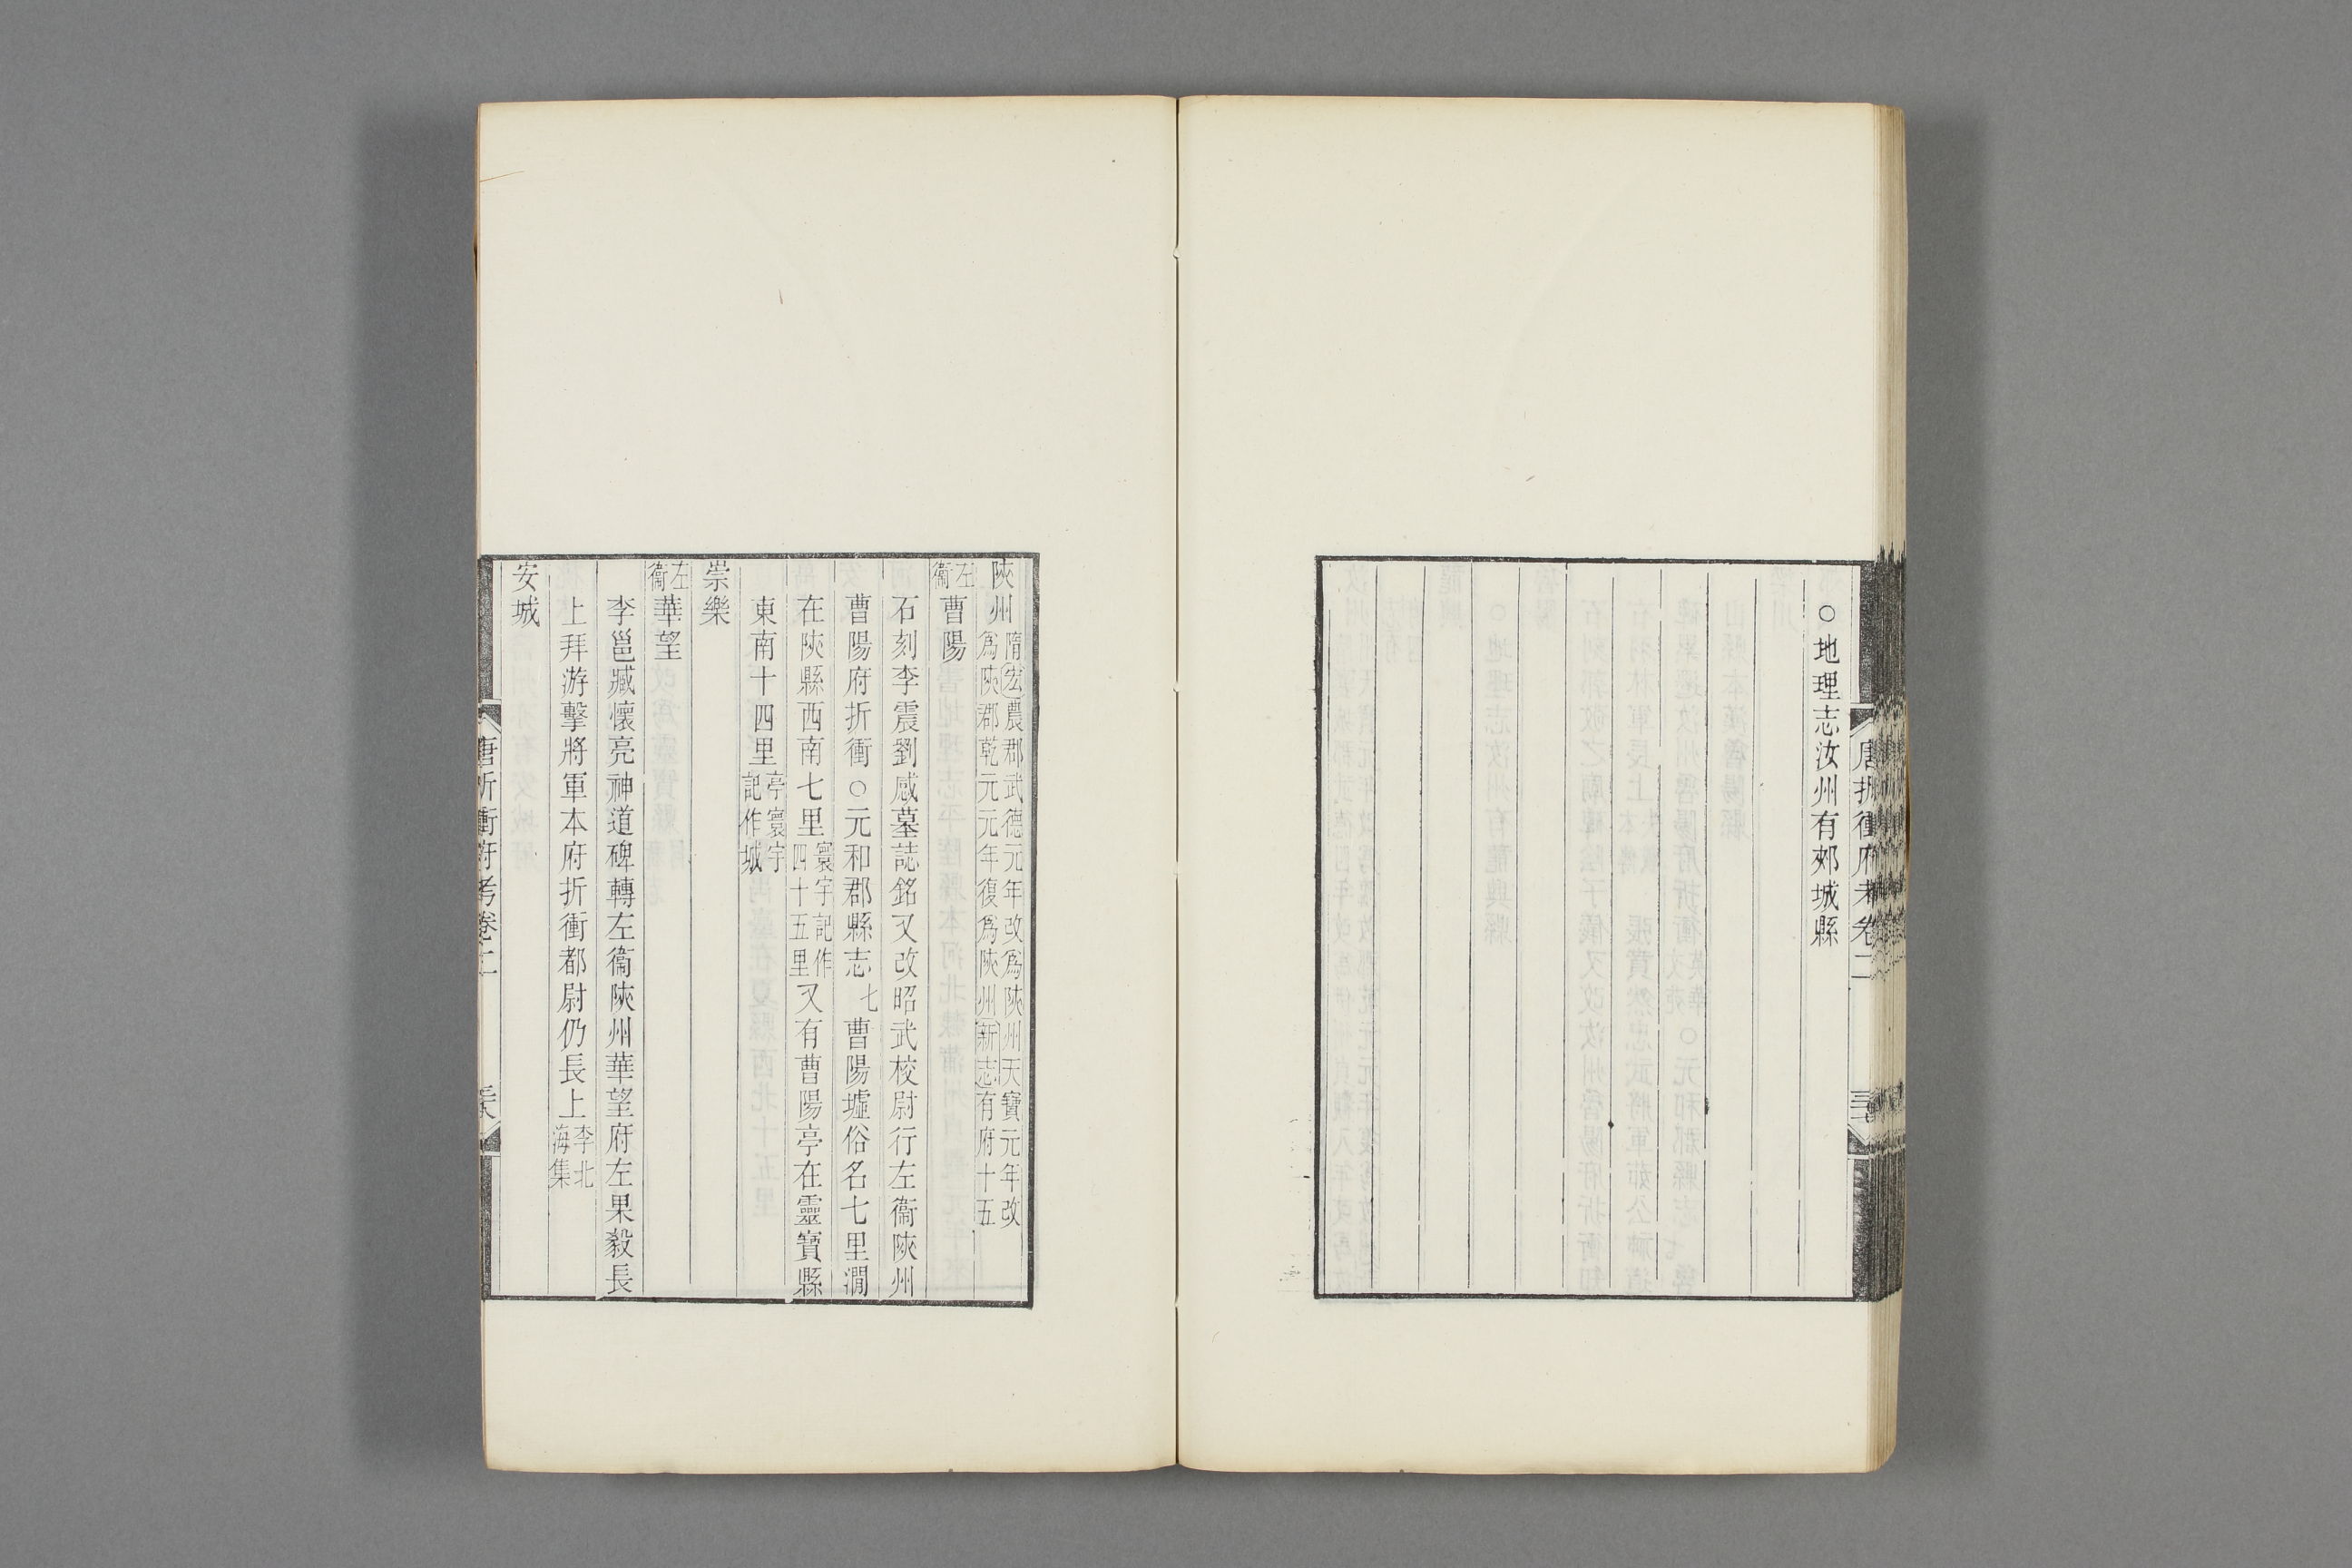 ○地理志汝州有郟城縣
唐折衝府考卷二
陝州隋宏農郡武德元年改爲陝州天寶元年改
爲陝郡乾元元年復爲陝州新志有府十五
左衞曹陽
石刻李震劉感墓誌銘又改昭武校尉行左衞陝州
曹陽府折衝○元和郡縣志七曹陽墟俗名七里澗
在陝縣西南七里寰宇記作四十五里又有曹陽亭在靈寶縣
東南十四里亭寰宇記作城
崇樂
左衞華望
李邕臧懷亮神道碑轉左衞陝州華望府左果毅長
上拜游擊將軍本府折衝都尉仍長上李北海集
安城
唐折衝府考卷二